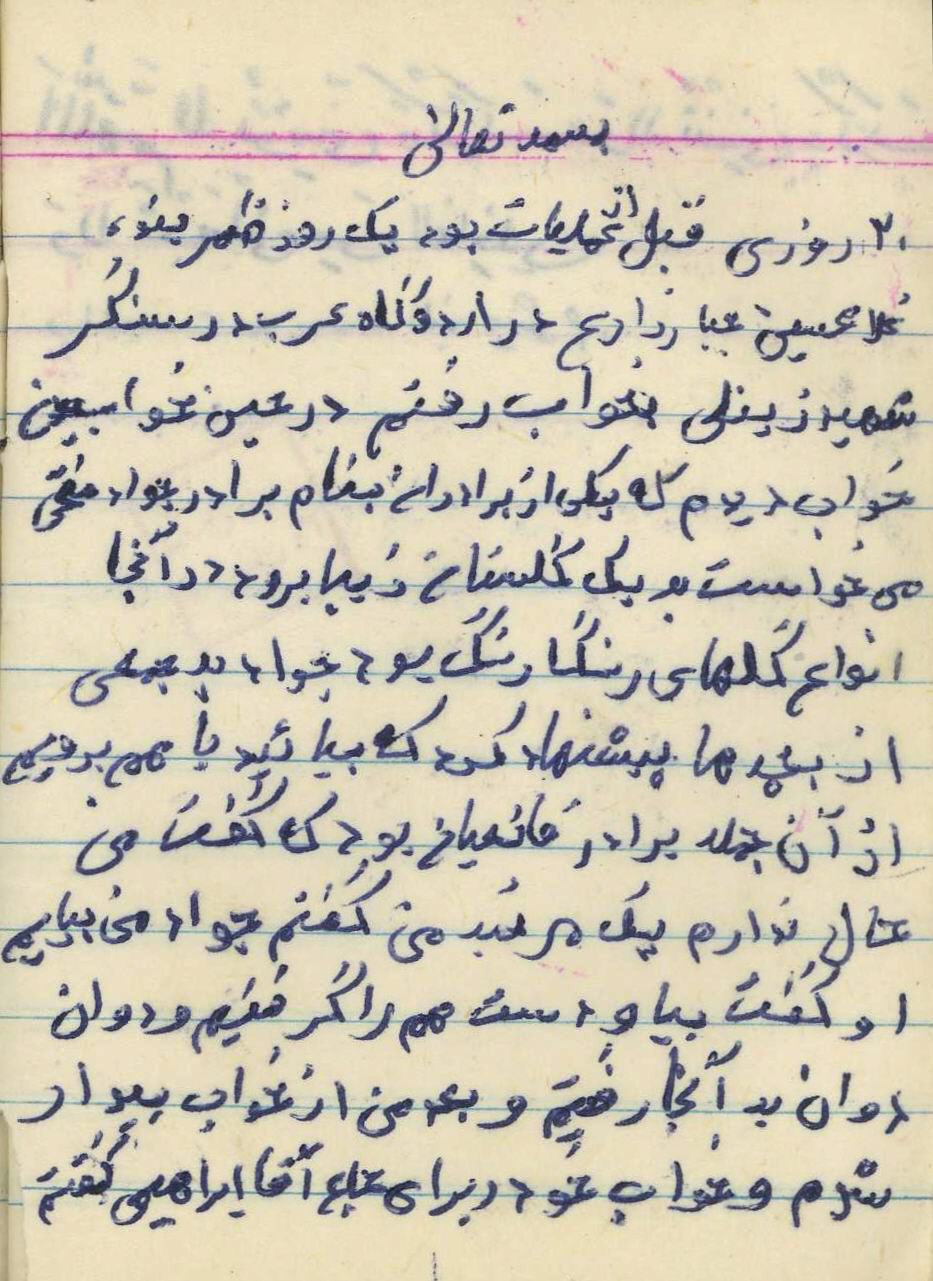 بسمه تعالی
۲۰ روزی قبل از عملیات بود یک روز ظهر بنده
غلامحسین در اردوگاه عرب در سنگر
شهید زینلی بخواب رفتم در عین خواب
خواب دیدم که یکی از برادران بنام برادر جواد
می خواست به یک گلستان زیبا برود در آنجا
انواع گلهای رنگارنگ بود جواد به بعضی
از بچه ها پیشنهاد کرد که بیائید با هم برویم
از آن جمله برادر بود که گفت من
حال ندارم یک مرتبه من گفتم جواد من بیایم
او گفت بیا و دست هم را گرفتیم و دوان
دوان به آنجا رفتیم و بعد من از خواب بیدار
شدم و خواب خود را برای حاج آقا ابراهیمی گفتم